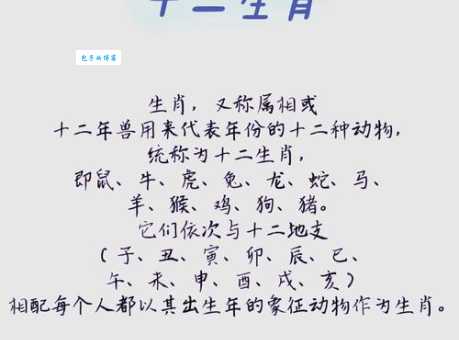 十二生肖
包子的博客
生肖，又称属相或
十二年兽用来代表年份的十二种动物，
统称为十二生肖，
即鼠、牛、虎、兔、龙、蛇、马、
羊、猴、鸡、狗、猪。
它们依次与十二地支
（子、丑、寅、卯、辰、巳、
午、未、申、酉、戌、亥）
相配每个人都以其出生年的象征动物作为生肖。